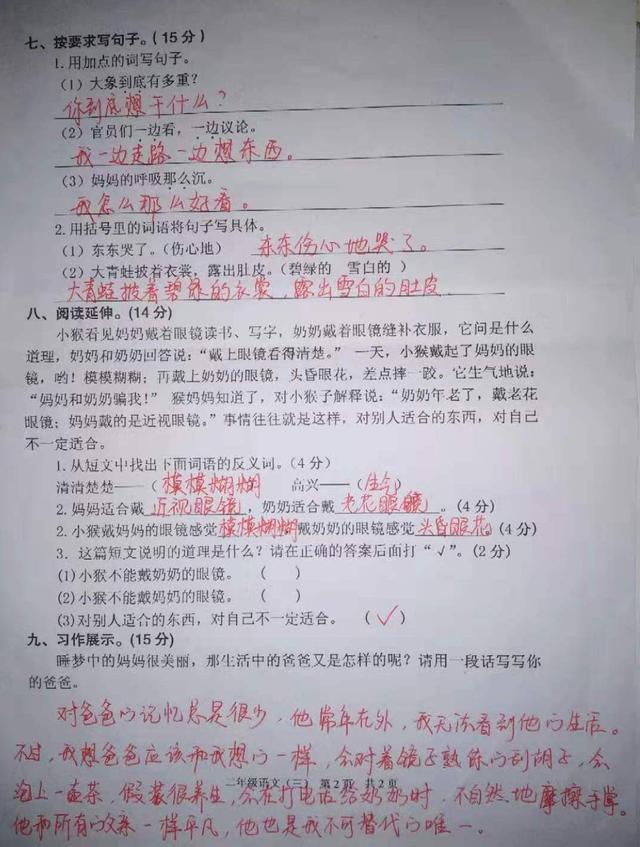 七、按要求写句子。(15 分)
1.用加点的词写句子。
(1) 大象到底有多重?
你到底想干什么?
(2) 官员们一边看,一边议论。
我一边走路一边想东西。
(3) 妈妈的呼吸那么沉。
我怎么那么好看。
2.用括号里的词语将句子写具体。
(1) 东东哭了。(伤心地) 东东伤心地哭了。
(2) 大青蛙披着衣裳,露出肚皮。(碧绿的 雪白的 )
大青蛙披着碧绿的衣裳,露出雪白的肚皮
八、阅读延伸。(14 分)
小猴看见妈妈戴着眼镜读书、写字,奶奶戴着眼镜缝补衣服,它问是什么
道理,妈妈和奶奶回答说:“戴上眼镜看得清楚。” 一天,小猴戴起了妈妈的眼
镜,哟!模模糊糊;再戴上奶奶的眼镜,头昏眼花,差点摔一跤。它生气地说:
“妈妈和奶奶骗我!” 猴妈妈知道了,对小猴子解释说:“奶奶年老了,戴老花
眼镜;妈妈戴的是近视眼镜。”事情往往就是这样,对别人适合的东西,对自己
不一定适合。
1.从短文中找出下面词语的反义词。(4 分)
清清楚楚——( 模模糊糊 高兴——(生气)
2.妈妈适合戴 近视眼镜 ,奶奶适合戴 老花眼镜 。(4 分)
2.小猴戴妈妈的眼镜感觉模模糊糊戴奶奶的眼镜感觉头昏眼花(4 分)
3.这篇短文说明的道理是什么?请在正确的答案后面打“√”。(2 分)
(1)小猴不能戴奶奶的眼镜。 ( )
(2)小猴不能戴妈妈的眼镜。 ( )
(3)对别人适合的东西,对自己不一定适合。 (√)
九、习作展示。(15 分)
睡梦中的妈妈很美丽,那生活中的爸爸又是怎样的呢?请用一段话写写你
的爸爸。
对爸爸的记忆总是很少,他常年在外,我无法看到他的生活。
不过,我想爸爸应该和我想的一样,会对着镜子熟练的刮胡子,会
泡上一壶茶,假装很养生,会在打电话给奶奶时,不自然地摩擦手掌。
二年级语文(三) 第 2 页 共 2 页
他和所有的父亲一样平凡,他也是我不可替代的唯一。